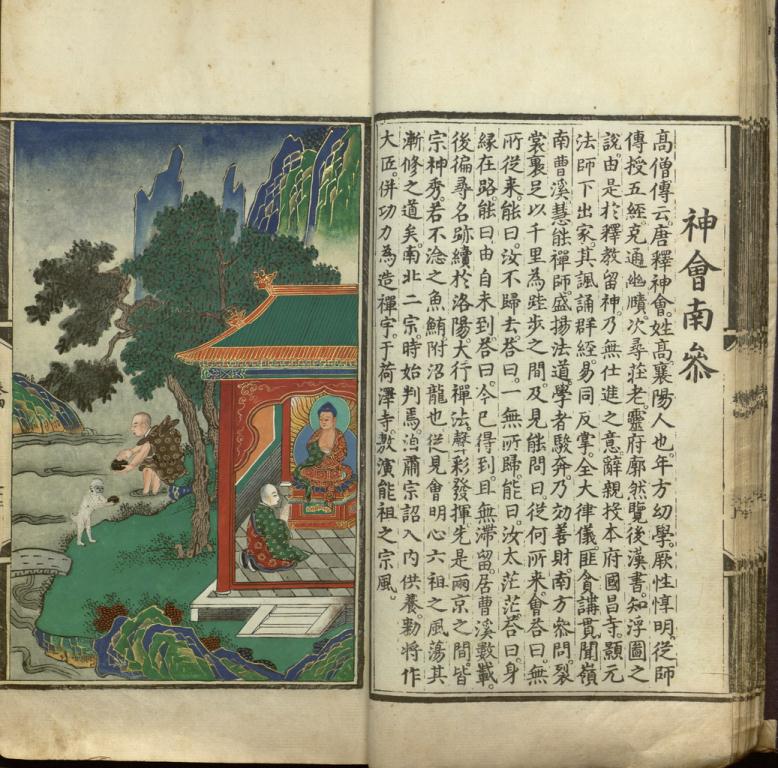 神會南參
高僧傳云。唐釋神會。姓高。襄陽人也。年方幼學。厥性惇明。從師
傳授五經。克通幽賾。次尋莊老。靈府廓然。覽後漢書。知浮圖之
說。由是於釋教留神。乃無仕進之意。辭親投本府國昌寺。顥元
法師下出家。其諷誦群經。易同反掌。全大律儀。匪貪講貫。聞嶺
南曹溪慧能禪師。盛揚法道。學者駿奔。乃効善財。南方參問。裂
裳裹足。以千里為跬步之間。及見。能問曰。從何所來。會荅曰。無
所從來。能曰。汝不歸去。荅曰。一無所歸。能曰。汝太茫茫。荅曰。身
緣在路。能曰。由自未到。荅曰。今已得到。且無滯留。居曹溪數載。
後徧尋名跡。續於洛陽大行禪法。聲彩發揮。先是兩京之間。皆
宗神秀。若不淰之魚鮪附沼龍也。從見會明心六祖之風。蕩其
漸修之道矣。南北二宗。時始判焉。肅宗詔入內供養。勅將作
大匠。併功力。為造禪宇。于荷澤寺。敷演能祖之宗風。